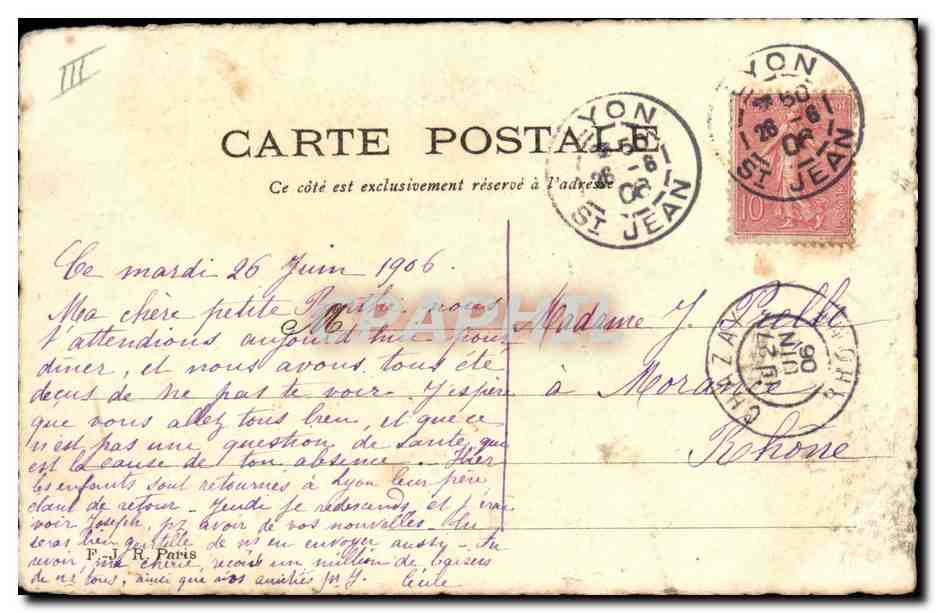 III
CARTE POSTALE
Ce côté est exclusivement réservé à l'adresse
LYON
50
26 -6
06
ST JEAN
LYON
50
26 -6
06
ST JEAN
10
CHAZAY
JUIN
06
RHÔNE
Ce mardi 26 Juin 1906.
Ma chère petite Marthe, nous
t'attendions aujourd'hui pour
diner, et nous avons tous été
déçus de ne pas te voir. J'espère
que vous allez tous bien, et que ce
n'est pas une question de santé qui
est la cause de ton absence... Hier
les enfants sont retournés à Lyon leur père
étant de retour - Jeudi je redescends et j'irai
voir Joseph, pr avoir de vos nouvelles - Tu
seras bien gentille de ns en envoyer aussi - Au
revoir, ma chérie, reçois un million de baisers
de ns tous, ainsi que nos amitiés pr J. Cécile
Madame J.
à Morancé
Rhône
F.-J. R. Paris
DELCAMPHIL